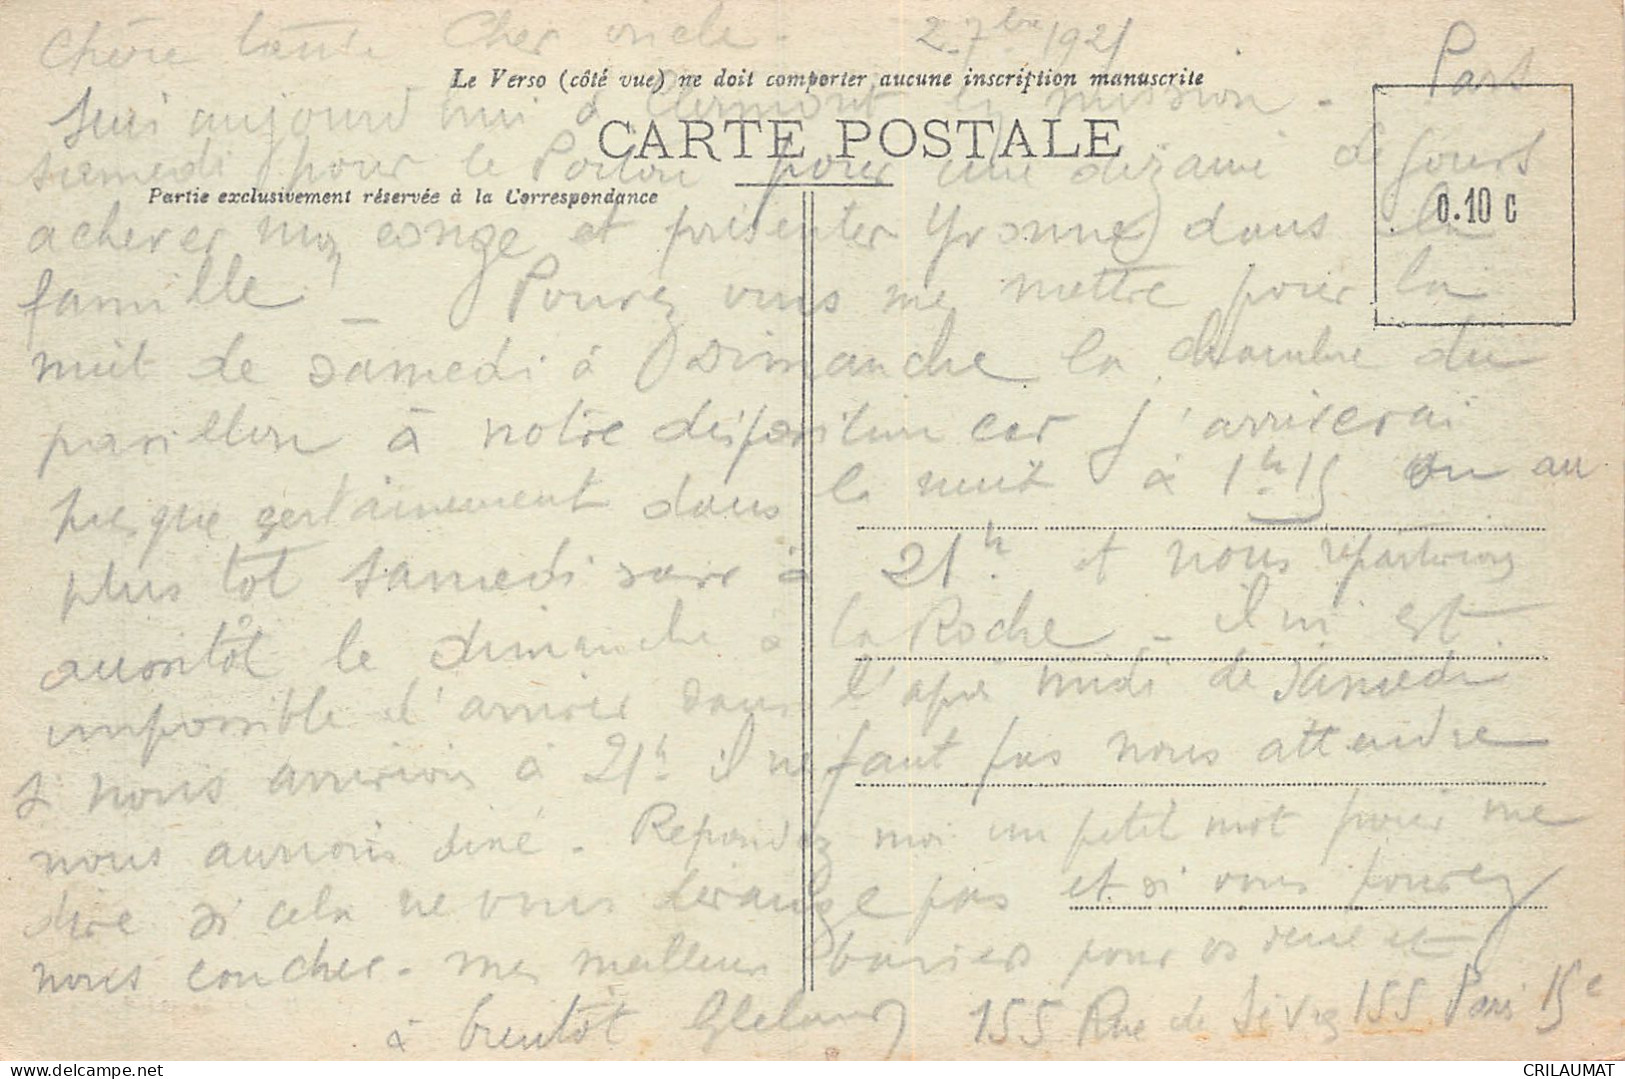 Chère tante Cher oncle - 2-7bre 1921
Le Verso (côté vue) ne doit comporter aucune inscription manuscrite
Suis aujourd'hui à Clermont en mission - Pars
CARTE POSTALE
samedi pour le Poitou pour une dizaine de jours
Partie exclusivement réservée à la Correspondance
0.10 c
achever mon congé et présenter Yvonne dans la
famille - Pouvez vous me mettre pour la
nuit de samedi à Dimanche la chambre du
pavillon à notre disposition car j'arriverai
presque certainement dans la nuit à 1h15 ou au
plus tôt samedi soir à 21h et nous repartirions
aussitôt le dimanche à la Roche - il m'est
impossible d'arriver dans l'après midi de samedi
si nous arrivions à 21h il ne faut pas nous attendre
nous aurions diné - Repondez moi un petit mot pour me
dire si cela ne vous dérange pas et si vous pouvez
nous coucher - mes meilleurs baisers pour vs deux et
à bientôt 155 Rue de Sèvres 155 Paris 15e
CRILAUMAT